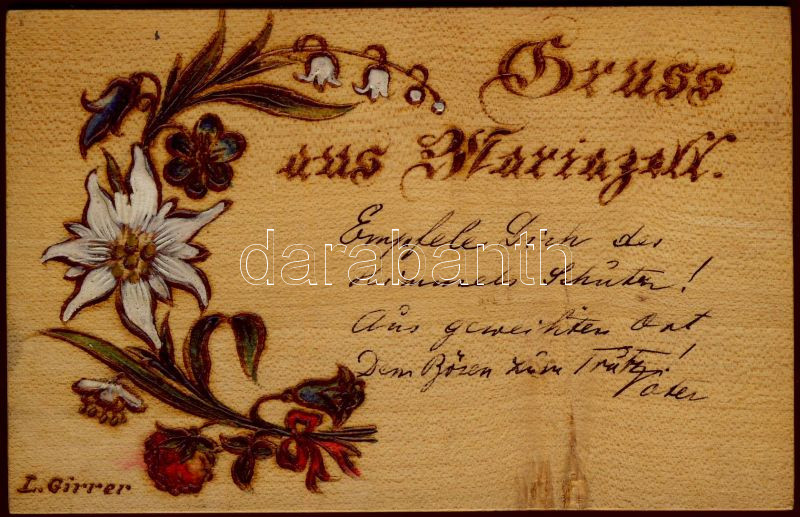 Gruss
aus Mariazell.
Empfele Dich des
Himmels Schutze!
Aus geweihten Ort
Dem Bösen zum Trutz!
Vater
darabanth
L. Girrer